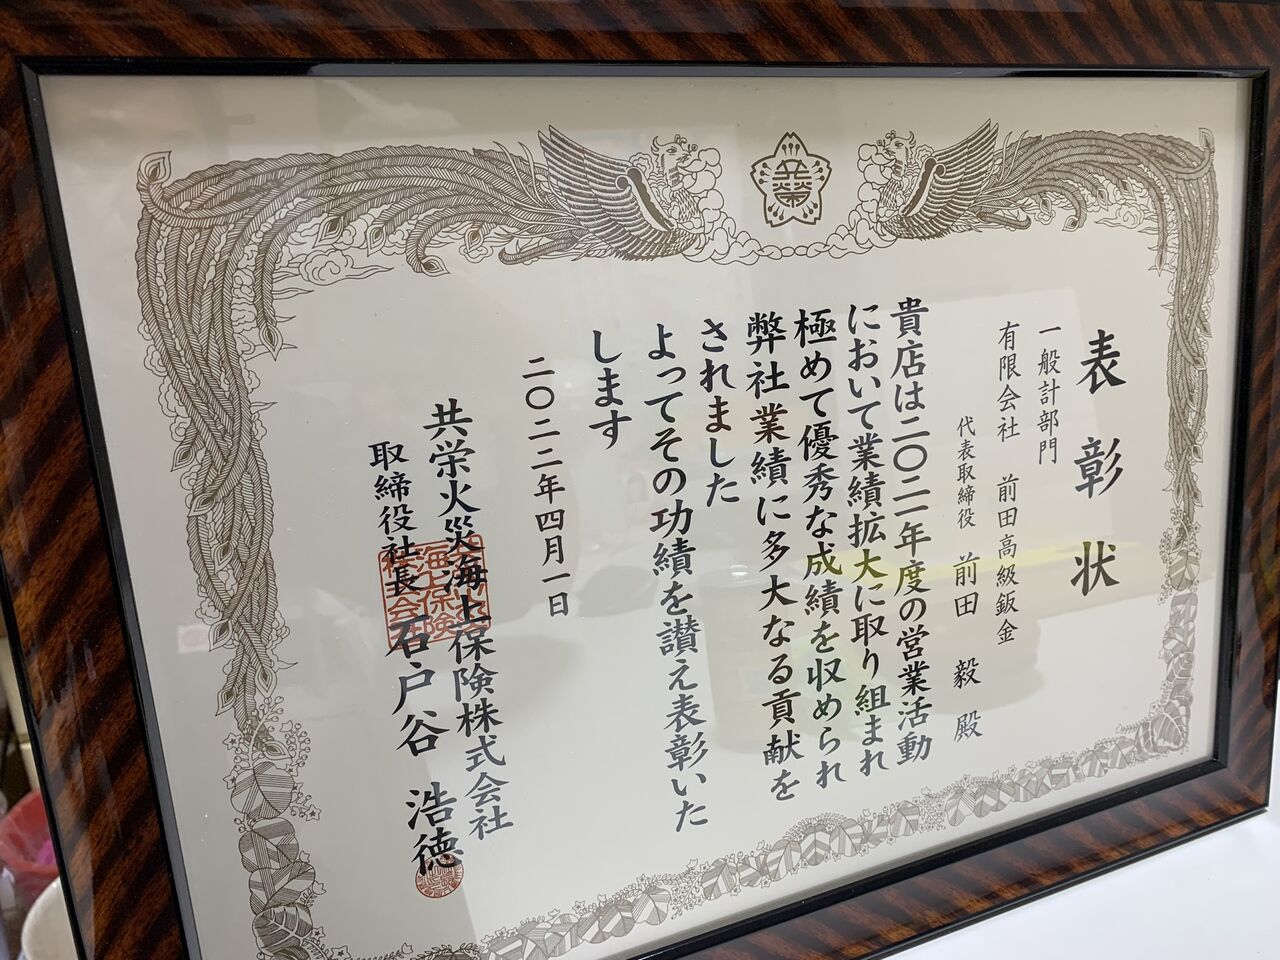 共栄
表彰状
一般計部門
有限会社 前田高級鈑金
代表取締役 前田 毅 殿
貴店は二〇二一年度の営業活動
において業績拡大に取り組まれ
極めて優秀な成績を収められ
弊社業績に多大なる貢献を
されました
よってその功績を讃え表彰いた
します
二〇二二年四月一日
共栄火災海上保険株式会社
取締役社長 石戸谷 浩徳